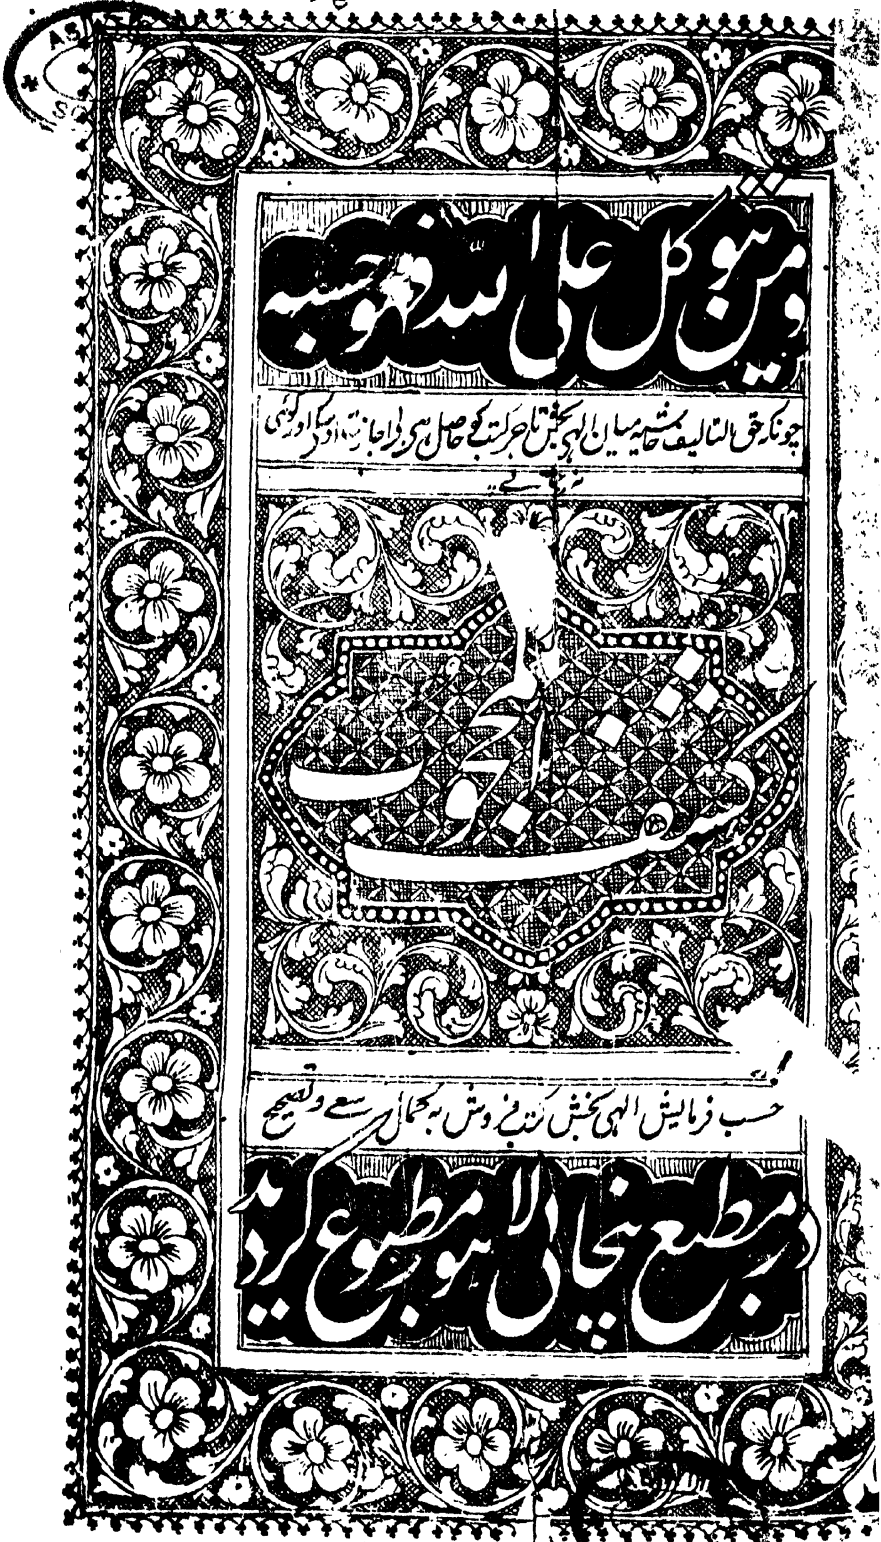 ومن یتوکل علی الله فهو حسبه
چونکہ حق التالیف حاشیہ میان الہی بخش تاجر کتب کو حاصل ہی بی اجازت اور کوئی
نہ چھاپے
کشف المحجوب
حسب فرمایش الہی بخش کتب فروش بہ کمال سعی و تصحیح
در مطبع پنجابی لاہور مطبوع گردید